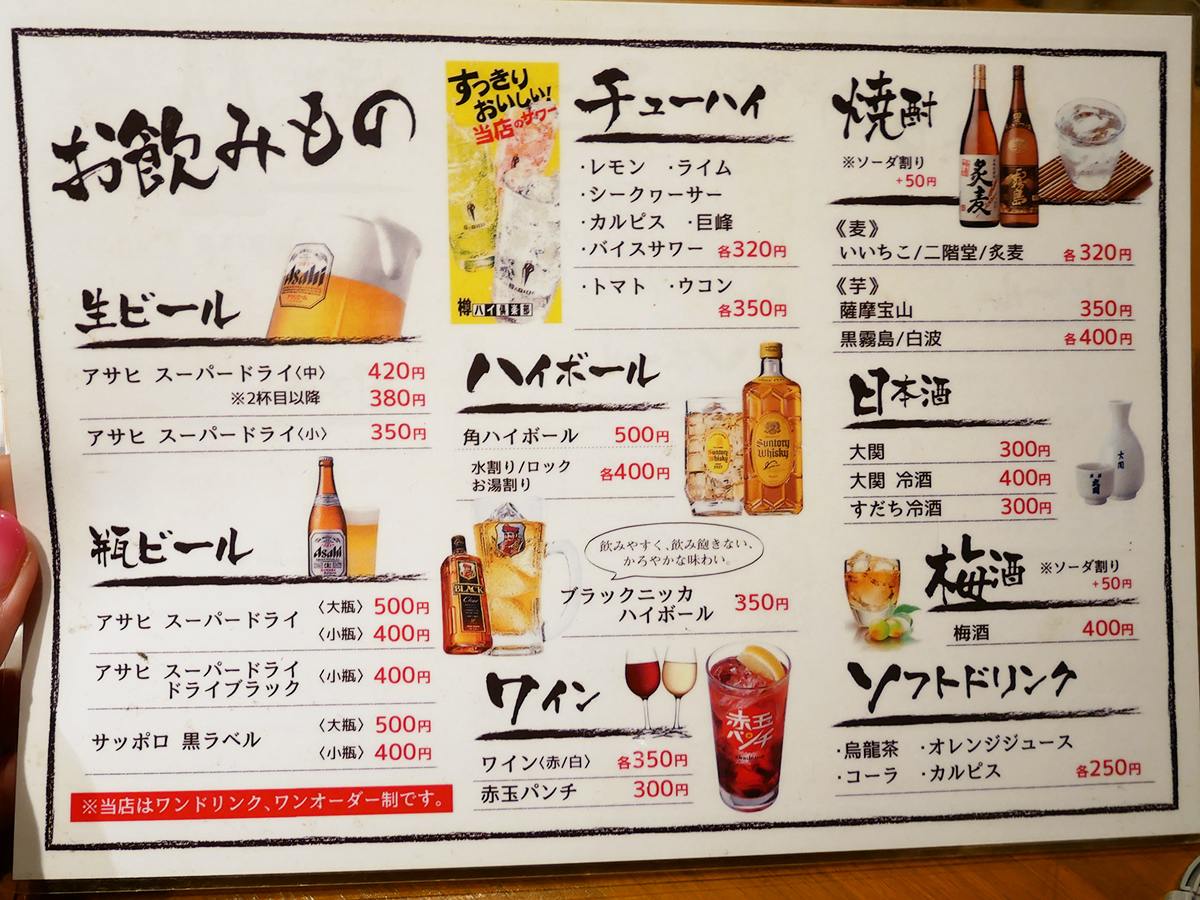 お飲みもの
生ビール
Asahi
アサヒ スーパードライ〈中〉 420円
※2杯目以降 380円
アサヒ スーパードライ〈小〉 350円
瓶ビール
Asahi
アサヒ スーパードライ 〈大瓶〉 500円
〈小瓶〉 400円
アサヒ スーパードライ
ドライブラック 〈小瓶〉 400円
サッポロ 黒ラベル 〈大瓶〉 500円
〈小瓶〉 400円
※当店はワンドリンク、ワンオーダー制です。
すっきり
おいしい!
当店のサワー
樽ハイ倶楽部
チューハイ
・レモン ・ライム
・シークヮーサー
・カルピス ・巨峰
・バイスサワー 各320円
・トマト ・ウコン
各350円
ハイボール
角ハイボール 500円
水割り/ロック
お湯割り 各400円
Suntory
Whisky
飲みやすく、飲み飽きない、
かろやかな味わい。
BLACK
Clear
ブラックニッカ
ハイボール 350円
ワイン
ワイン〈赤/白〉 各350円
赤玉パンチ 300円
赤玉
パンチ
焼酎
※ソーダ割り
+50円
炙麦
黒霧島
《麦》
いいちこ/二階堂/炙麦 各320円
《芋》
薩摩宝山 350円
黒霧島/白波 各400円
日本酒
大関 300円
大関 冷酒 400円
すだち冷酒 300円
大関
梅酒
※ソーダ割り
+50円
梅酒 400円
ソフトドリンク
・烏龍茶 ・オレンジジュース
・コーラ ・カルピス 各250円